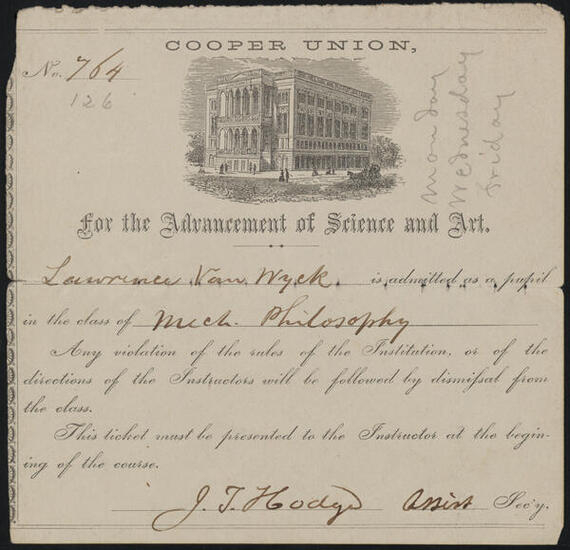 COOPER UNION,
No. 764
126
Monday
Wednesday
Friday
For the Advancement of Science and Art.
Lawrence Van Wyck is admitted as a pupil
in the class of Mech. Philosophy
Any violation of the rules of the Institution, or of the
directions of the Instructors will be followed by dismiſsal from
the class.
This ticket must be presented to the Instructor at the begin-
ing of the course.
J. T. Hodge Assist Sec'y.